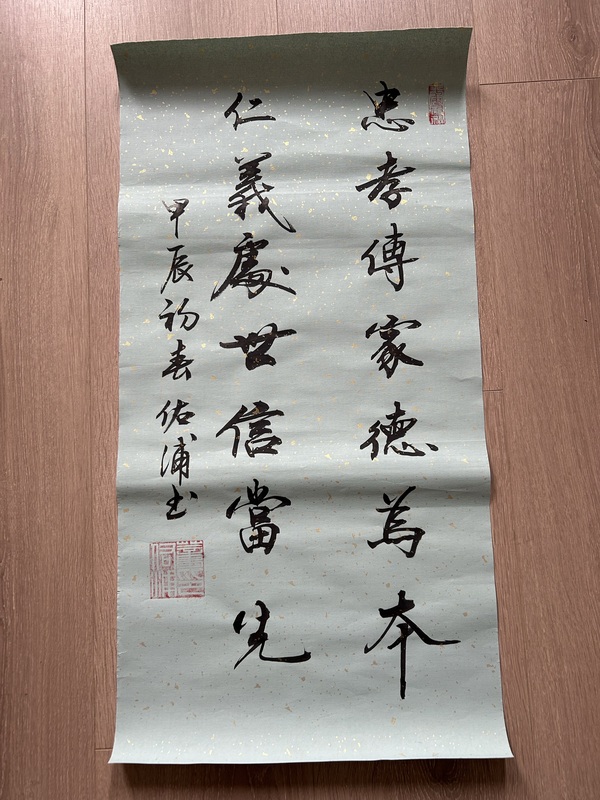 忠孝傳家德為本
仁義處世信當先
甲辰初春佑浦书